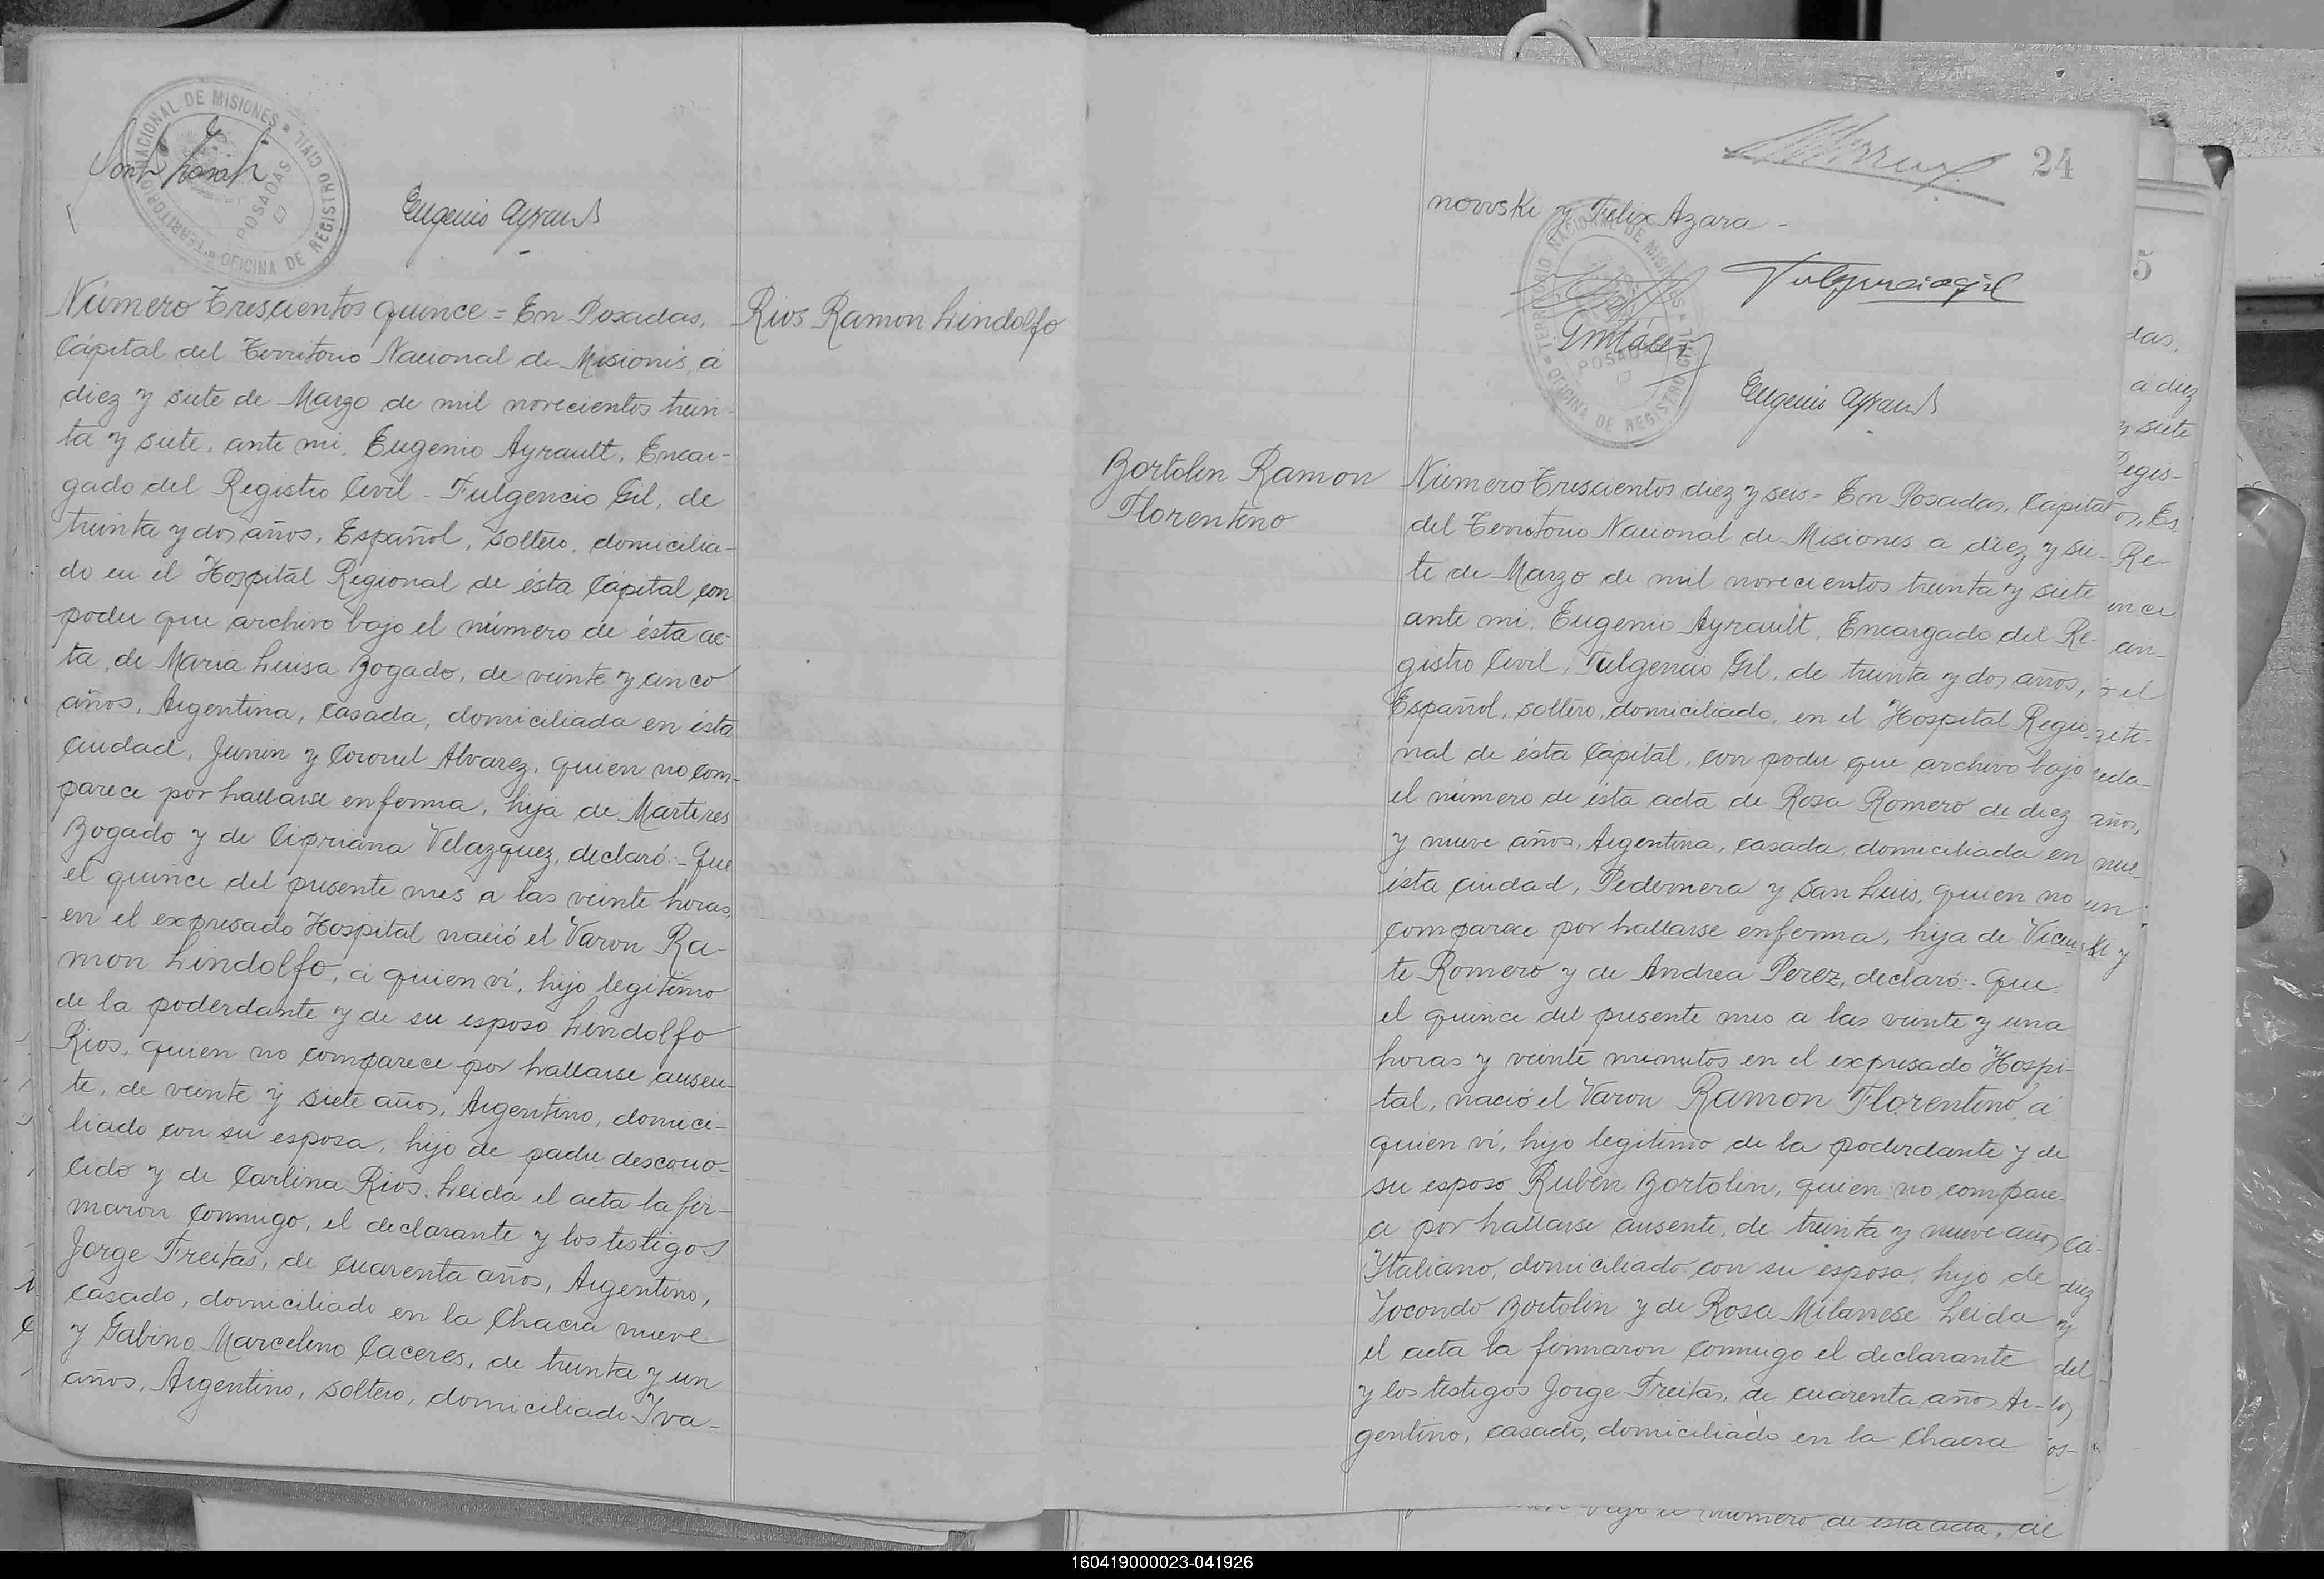 TERRITORIO NACIONAL DE MISIONES
OFICINA DE REGISTRO CIVIL
POSADAS
Eugenio Ayrault
Número Trescientos quince = En Posadas,
Cápital del Territorio Nacional de Misiones, á
diez y siete de Marzo de mil novecientos trein-
ta y siete, ante mi, Eugenio Ayrault, Encar-
gado del Registro Civil - Fulgencio Gil, de
treinta y dos años, Español, soltero, domicilia-
do en el Hospital Regional de ésta Cápital, con
poder que archivo bajo el número de ésta ac-
ta, de Maria Luisa Bogado, de veinte y cinco
años, Argentina, casada, domiciliada en ésta
Ciudad, Junin y Coronel Alvarez, quien no com-
parece por hallarse enferma, hija de Martires
Bogado y de Cipriana Velazquez, declaró:- Que
el quince del presente mes a las veinte horas,
en el expresado Hospital nació el Varon Ra-
mon Lindolfo, á quien ví, hijo legitimo
de la poderdante y de su esposo Lindolfo
Rios, quien no comparece por hallarse ausen-
te, de veinte y siete años, Argentino, domici-
liado con su esposa, hijo de padre descono-
cido y de Carlina Rios. Leida el acta la fir-
maron conmigo, el declarante y los testigos
Jorge Freitas, de cuarenta años, Argentino,
casado, domiciliado en la Chacra nueve
y Gabino Marcelino Caceres, de treinta y un
años, Argentino, soltero, domiciliado Iva-
Rios Ramon Lindolfo
24
novvski y Felix Azara -
TERRITORIO NACIONAL DE MISIONES
OFICINA DE REGISTRO CIVIL
POSADAS
Fulgenciogil
Eugenio Ayrault
Bortolin Ramon
Florentino
Número Trescientos diez y seis = En Posadas, Capital
del Territorio Nacional de Misiones a diez y sie-
te de Marzo de mil novecientos treinta y siete
ante mi, Eugenio Ayrault, Encargado del Re-
gistro Civil, Fulgencio Gil, de treinta y dos años,
Español, soltero, domiciliado, en el Hospital Regio-
nal de ésta Cápital, con poder que archivo bajo
el número de ésta acta de Rosa Romero de diez
y nueve años, Argentina, casada, domiciliada en
ésta ciudad, Pedernera y San Luis, quien no
comparece por hallarse enferma, hija de Vicen-
te Romero y de Andrea Perez, declaró:- Que
el quince del presente mes a las veinte y una
horas y veinte minutos en el expresado Hospi-
tal, nació el Varon Ramon Florentino, á
quien ví, hijo legitimo de la poderdante y de
su esposo Rubén Bortolin, quien no compare-
ce por hallarse ausente, de treinta y nueve años
Italiano, domiciliado con su esposa, hijo de
Jocondo Bortolin y de Rosa Milanese. Leida
el acta la firmaron conmigo el declarante
y los testigos Jorge Freitas, de cuarenta años Ar-
gentino, casado, domiciliado en la Chacra
5
das,
a diez
y siete
Regis-
Re-
an-
o el
años,
un
ki y
diez
y
del
los
número de esta acta, de
160419000023-041926